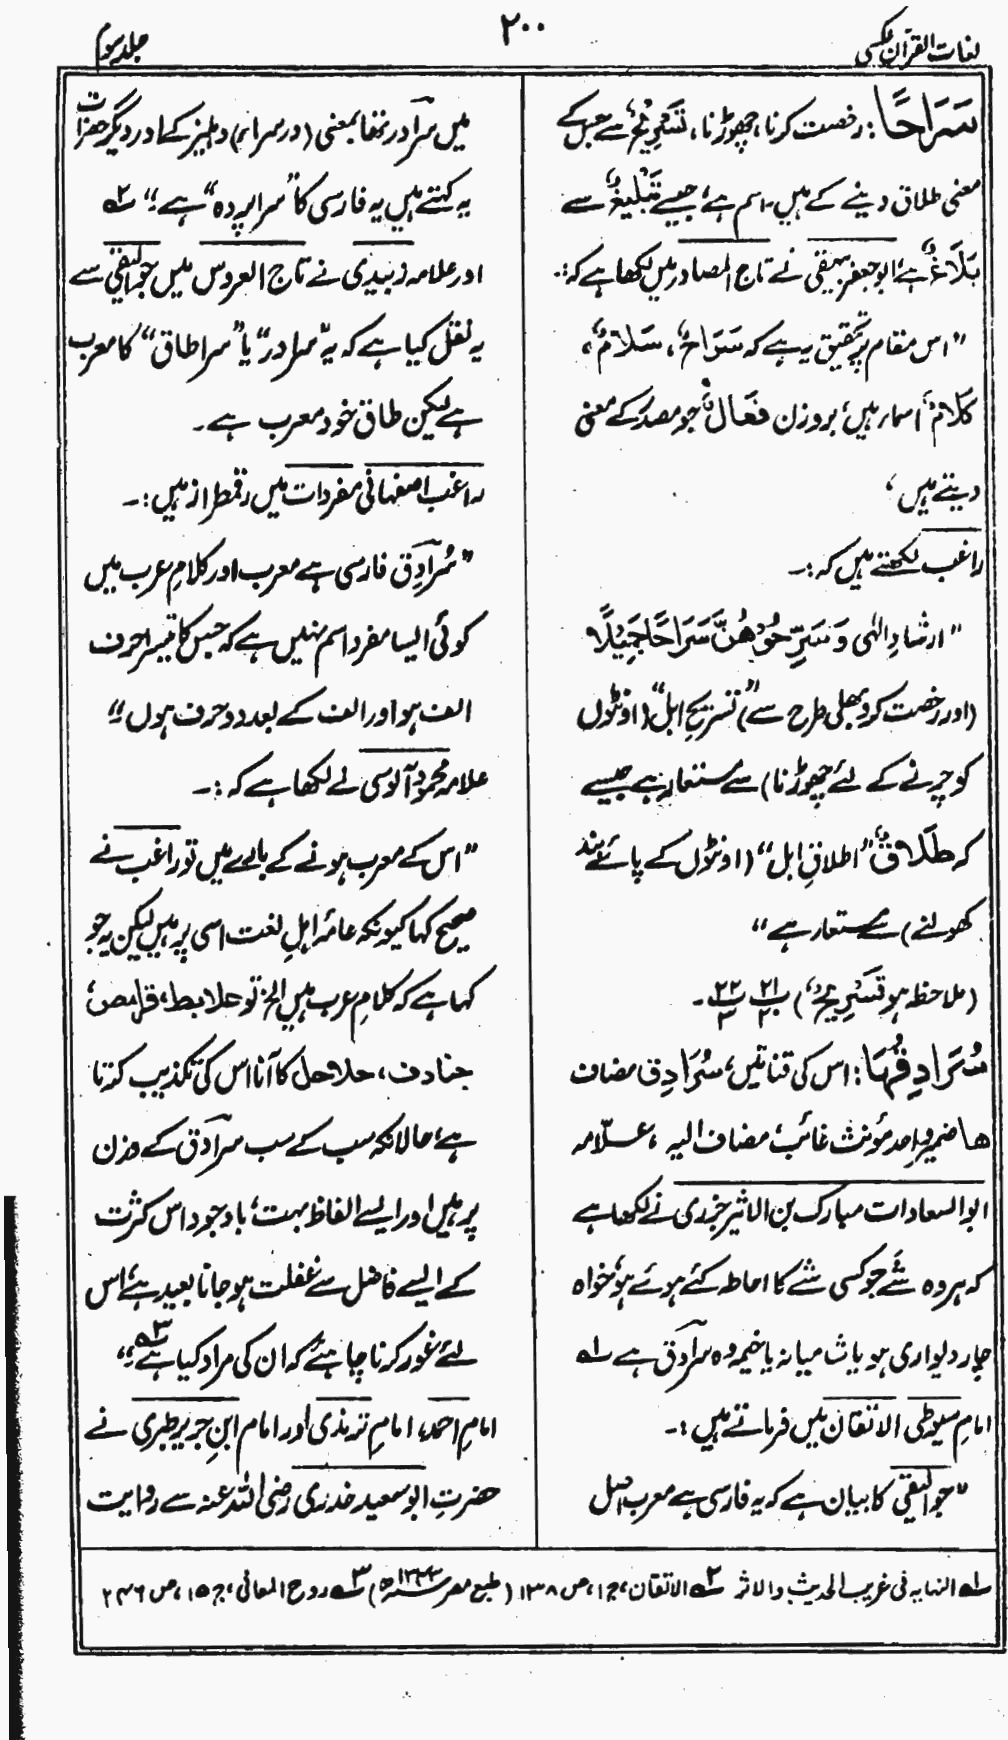 لغات القرآن عکسی
۲۰۰
جلد سوم
سَرَاحًا: رخصت کرنا، چھوڑنا، تَسْرِیْحٌ سے جس کے
معنی طلاق دینے کے ہیں۔ اسم ہے، جیسے تَبْلِیْغٌ سے
بَلَاغٌ ہے، ابو جعفر بیہقی نے تاج المصادر میں لکھا ہے کہ:۔
"اس مقام پر تحقیق یہ ہے کہ سَرَاحٌ، سَلَامٌ،
کَلَامٌ اسماء ہیں، بروزن فَعَالٌ، جو مصدر کے معنی
دیتے ہیں،
راغب لکھتے ہیں کہ:۔
"ارشادِ الٰہی وَسَرِّحُوْهُنَّ سَرَاحًا جَمِیْلًا
(اور رخصت کرو بھلی طرح سے) "تسریحِ ابل" (اونٹوں
کو چرنے کے لئے چھوڑنا) سے مستعار ہے جیسے
کہ طَلَاقٌ "اطلاقِ ابل" (اونٹوں کے پائے بند
کھولنے) سے مستعار ہے"
(ملاحظہ ہو تَسْرِیْحٌ) ۲۱/۲ ۲۲/۳ ۔
سُرَادِقُهَا: اس کی قناتیں، سُرَادِق مضاف
ھا ضمیر واحد مؤنث غائب، مضاف الیہ، علّامہ
ابوالسعادات مبارک بن الاثیر جزری نے لکھا ہے
کہ ہر وہ شئے جو کسی شئے کا احاطہ کئے ہوئے ہو، خواہ
چار دیواری ہو یا شامیانہ یا خیمہ وہ سرادق ہے ۱؎
امام سیوطی الاتقان میں فرماتے ہیں:۔
"جوالیقی کا بیان ہے کہ یہ فارسی ہے معرب اصل
میں سرادر تھا بمعنی (در سرائے) دہلیز کے اور دیگر حضرات
یہ کہتے ہیں یہ فارسی کا "سراپردہ" ہے۔" ۲؎
اور علامہ زبیدی نے تاج العروس میں جوالیقی سے
یہ نقل کیا ہے کہ یہ "سرادر" یا "سراطاق" کا معرب
ہے لیکن طاق خود معرب ہے۔
راغب اصفہانی مفردات میں رقمطراز ہیں:۔
"سُرَادِق فارسی ہے معرب اور کلامِ عرب میں
کوئی ایسا مفرد اسم نہیں ہے کہ جس کا تیسرا حرف
الف ہو اور الف کے بعد دو حرف ہوں۔"
علامہ محمود آلوسی نے لکھا ہے کہ:۔
"اس کے معرب ہونے کے بارے میں تو راغب نے
صحیح کہا کیونکہ عامہ اہلِ لغت اسی پر ہیں لیکن یہ جو
کہا ہے کہ کلامِ عرب میں الخ تو علابط، قرامص،
جنادف، حلاحل کا آنا اس کی تکذیب کرتا
ہے، حالانکہ سب کے سب سرادق کے وزن
پر ہیں اور ایسے الفاظ بہت، باوجود اس کثرت
کے ایسے فاضل سے غفلت ہو جانا بعید ہے، اس
لئے غور کرنا چاہئے کہ ان کی مراد کیا ہے۔" ۳؎
امام احمد، امام ترمذی اور امام ابن جریر طبری نے
حضرت ابو سعید خدری رضی اللہ عنہ سے روایت
۱؎ النہایہ فی غریب الحدیث والاثر ۲؎ الاتقان، ج۱، ص ۱۳۸ (طبع مصر) ۳؎ روح المعانی، ج۱۵، ص ۲۴۶